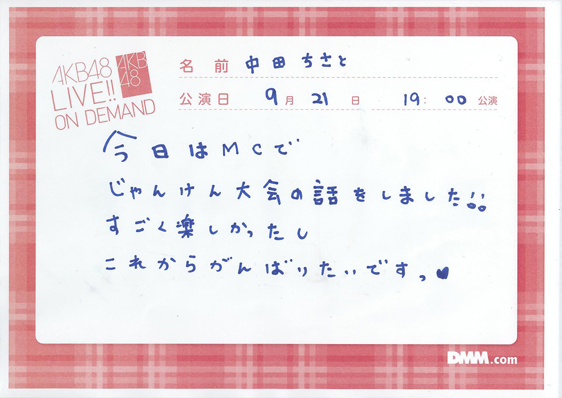 AKB48
LIVE!!
ON DEMAND
AKB
48
名前 中田ちさと
公演日 9月21日 19:00公演
今日はMCで
じゃんけん大会の話をしました!!
すごく楽しかったし
これからがんばりたいです。♥
DMM.com